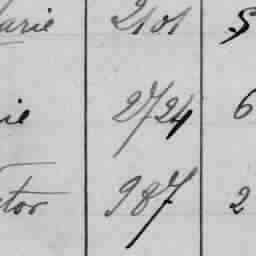 arie 2101 5
ie 2724 6
ctor 987 2